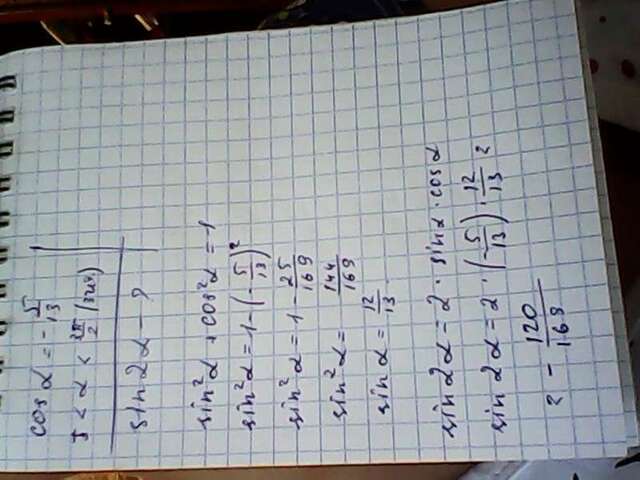 cos α = - 5/13
π < α < 3π/2 (3 чет.)
sin 2α - ?
sin²α + cos²α = 1
sin²α = 1 - (- 5/13)²
sin²α = 1 - 25/169
sin²α = 144/169
sin α = 12/13.
sin 2α = 2 · sin α · cos α
sin 2α = 2 · (- 5/13) · 12/13 =
= - 120/169